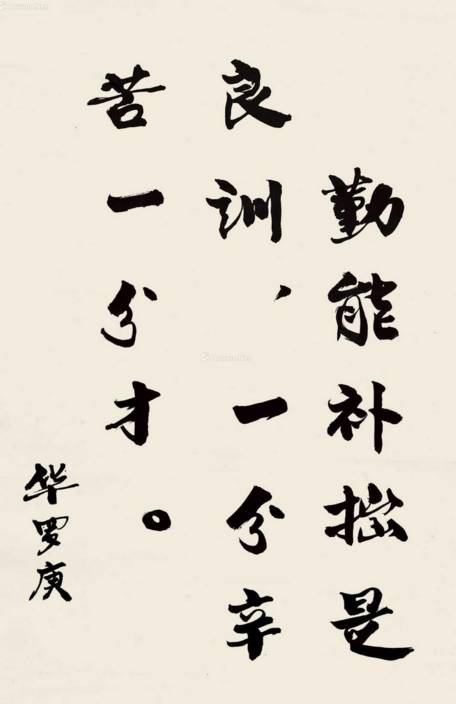 勤能补拙是
良训、一分辛
苦一分才。
华罗庚